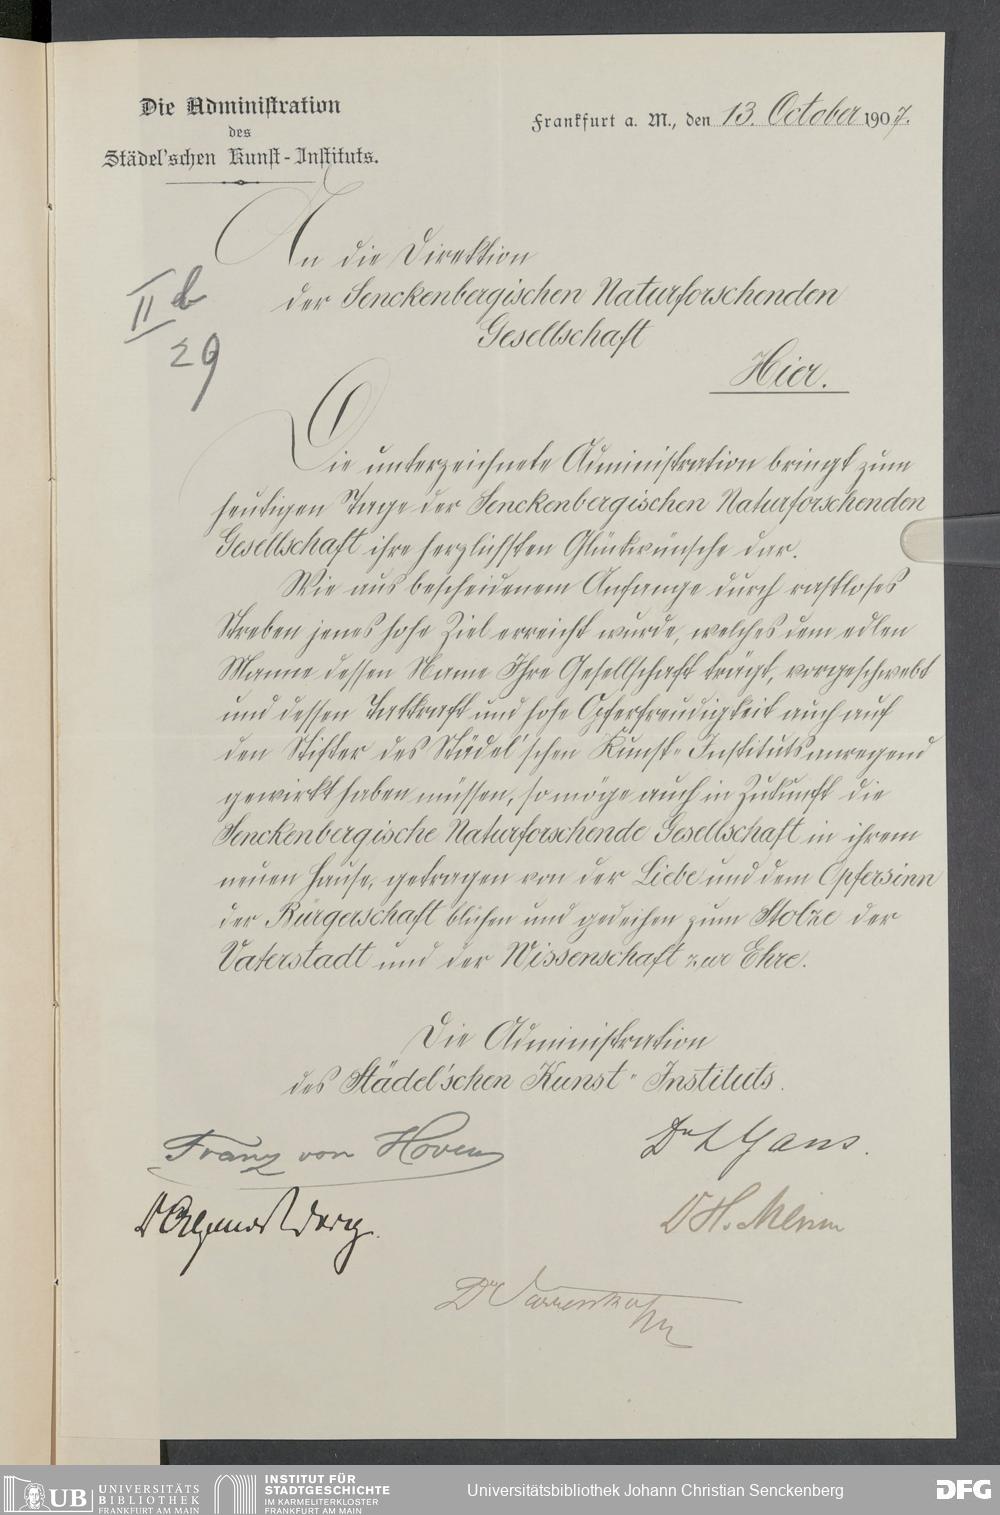 Die Administration
des
Städel'schen Kunst-Instituts.
Frankfurt a. M., den 13. October 1907.
An die Direktion
der Senckenbergischen Naturforschenden
Gesellschaft
Hier.
II b
29
Die unterzeichnete Administration bringt zum
heutigen Tage der Senckenbergischen Naturforschenden
Gesellschaft ihre herzlichsten Glückwünsche dar.
Wie aus bescheidenem Anfange durch rastloses
Streben jenes hohe Ziel erreicht wurde, welches dem edlen
Manne dessen Name Ihre Gesellschaft trägt, vorgeschwebt
und dessen Tatkraft und hohe Opferfreudigkeit auch auf
den Stifter des Städel'schen Kunst-Instituts anregend
gewirkt haben müssen, so möge auch in Zukunft die
Senckenbergische Naturforschende Gesellschaft in ihrem
neuen Hause, getragen von der Liebe und dem Opfersinn
der Bürgerschaft blühen und gedeihen zum Stolze der
Vaterstadt und der Wissenschaft zur Ehre.
Die Administration
des Städel'schen Kunst-Instituts.
Franz von Hoven
Dr L Gans.
Dr
Dr H.
Dr
UB UNIVERSITÄTS
BIBLIOTHEK
FRANKFURT AM MAIN
INSTITUT FÜR
STADTGESCHICHTE
IM KARMELITERKLOSTER
FRANKFURT AM MAIN
Universitätsbibliothek Johann Christian Senckenberg
DFG